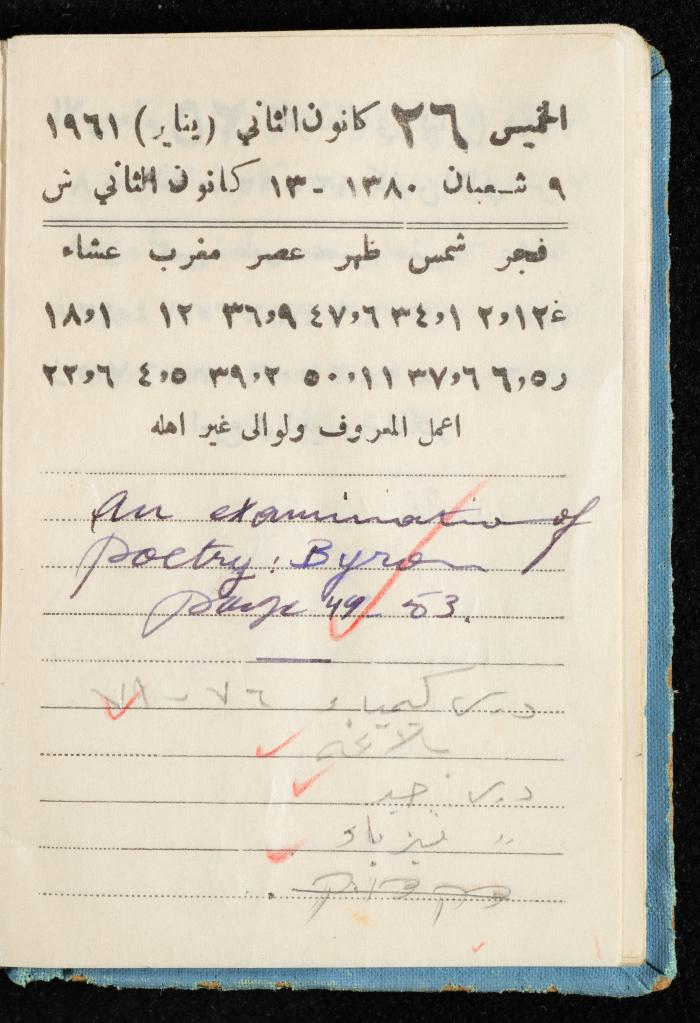 الخميس ٢٦ كانون الثاني (يناير) ١٩٦١
٩ شعبان ١٣٨٠ - ١٣ كانون الثاني ش
فجر شمس ظهر عصر مغرب عشاء
غ ١٢,٢ ١,٣٤ ٦,٤٧ ٩,٣٦ ١٢ ١,١٨
ز ٥,٦ ٦,٣٧ ١١,٥٠ ٢,٣٩ ٥,٤ ٦,٢٢
اعمل المعروف ولو الى غير اهله
An examination of
poetry: Byron
page 49-53.
درس كيمياء ٧٦ - ٧٨
درس جبر
〃 فيزياء